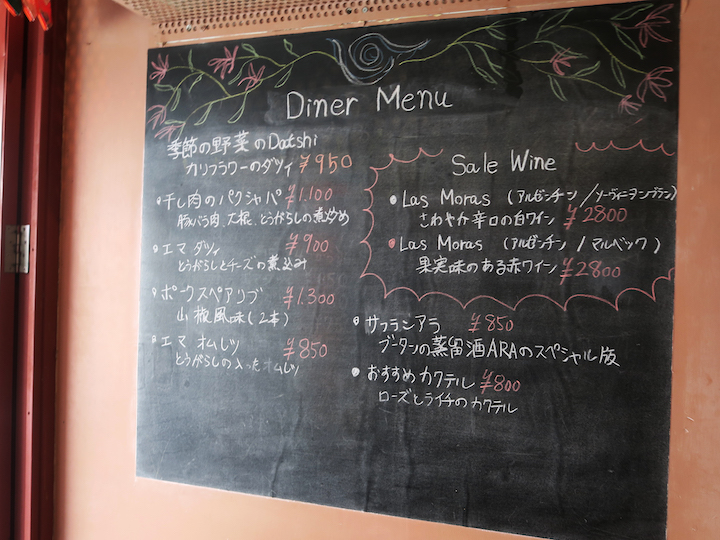 Diner Menu
季節の野菜のDatshi
カリフラワーのダツィ ¥950
・干し肉のパクシャパ ¥1.100
豚バラ肉、大根、とうがらしの煮炒め
・エマ ダツィ ¥900
とうがらしとチーズの煮込み
・ポークスペアリブ ¥1.300
山椒風味(2本)
・エマ オムレツ ¥850
とうがらしの入ったオムレツ
Sale Wine
・Las Moras (アルゼンチン/ソーヴィニヨンブラン)
さわやか辛口の白ワイン ¥2800
・Las Moras (アルゼンチン/マルベック)
果実味のある赤ワイン ¥2800
・サフランアラ ¥850
ブータンの蒸留酒ARAのスペシャル版
・おすすめカクテル ¥800
ローズとライチのカクテル